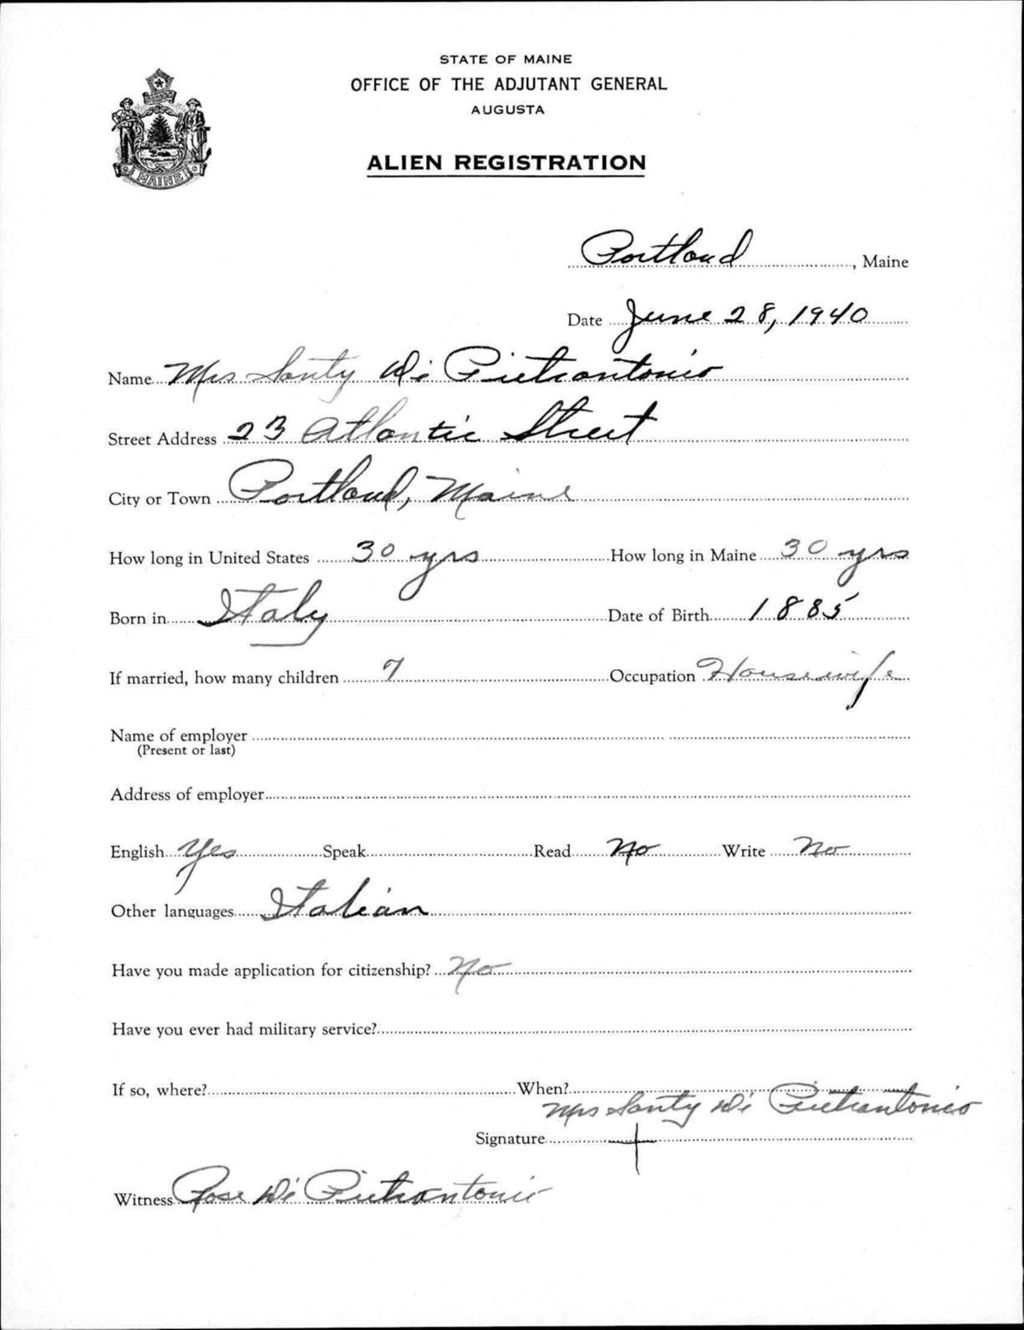 STATE OF MAINE
OFFICE OF THE ADJUTANT GENERAL
AUGUSTA
ALIEN REGISTRATION
MAINE
Portland, Maine
Date June 28, 1940
Name Mrs Santy Di Pietrantonio
Street Address 23 Atlantic Street
City or Town Portland, Maine
How long in United States 30 yrs How long in Maine 30 yrs
Born in Italy Date of Birth 1885
If married, how many children 7 Occupation Housewife
Name of employer
(Present or last)
Address of employer
English Yes Speak Read No Write No
Other languages Italian
Have you made application for citizenship? No
Have you ever had military service?
If so, where? When?
Mrs Santy Di Pietrantonio
Signature +
Witness Rose Di Pietrantonio